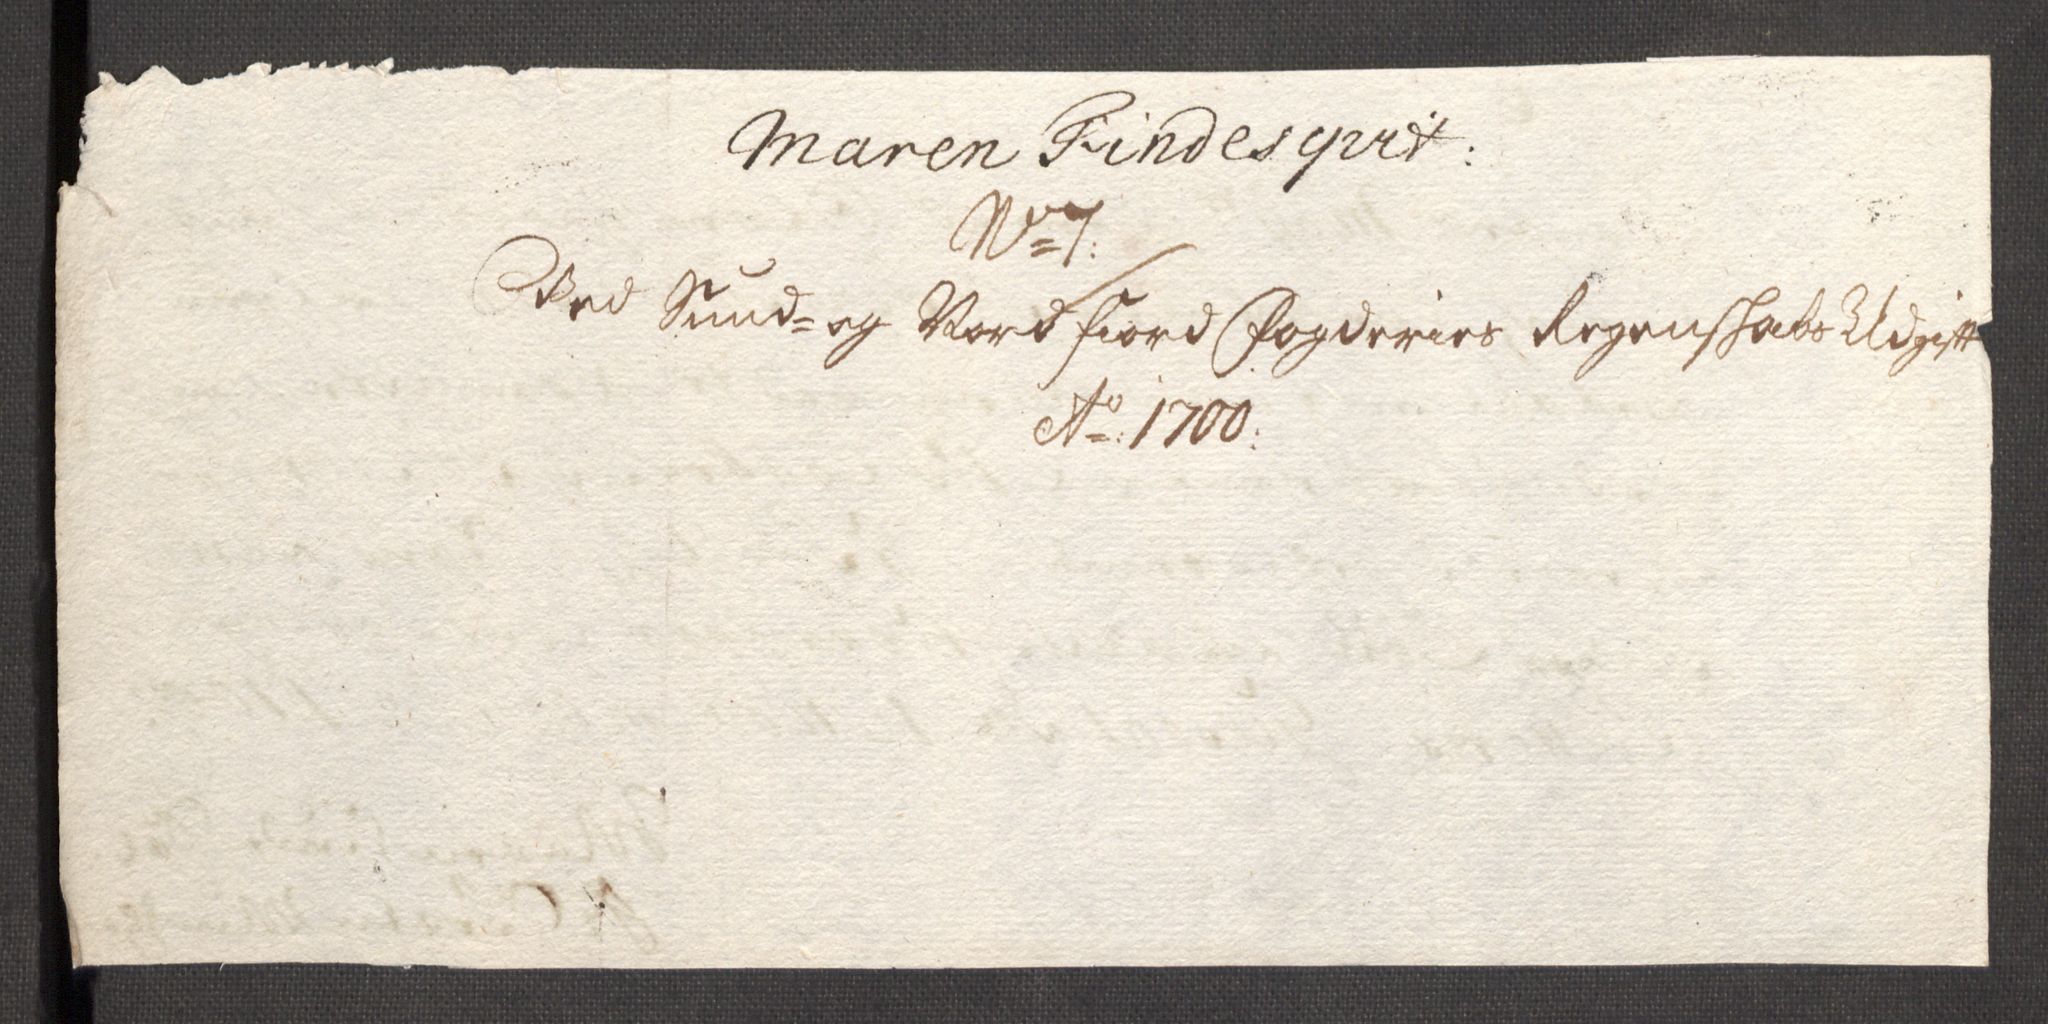 Maren Findes qvit:
No 7:
Ved Sund- og Nordfiord Fogderies Regenskabs Udgift
Ao: 1700: